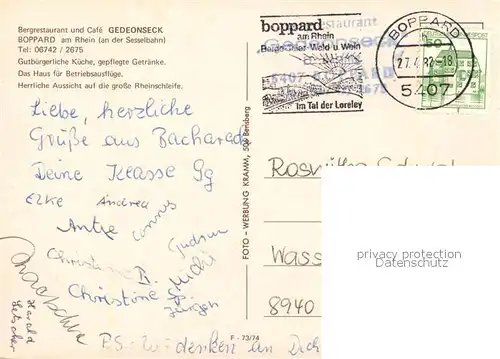 Bergrestaurant und Café GEDEONSECK
BOPPARD am Rhein (an der Sesselbahn)
Tel: 06742 / 2675
Gutbürgerliche Küche, gepflegte Getränke.
Das Haus für Betriebsausflüge.
Herrliche Aussicht auf die große Rheinschleife.
boppard
am Rhein
Berge Bäder Wald u Wein
Im Tal der Loreley
BOPPARD
27.4.82-18
5407
50
5407 BOPPARD
2675
Liebe, herzliche
Grüße aus Bacharach
Deine Klasse 9g
Elke Andrea
Antje Connys
Gudrun
Christine R. Michi
Christine
Jürgen
Harald
P.S. Wir denken an Dich
FOTO - WERBUNG KRAMM, 509 Bensberg
F - 73/74
Wass
8940
privacy protection
Datenschutz